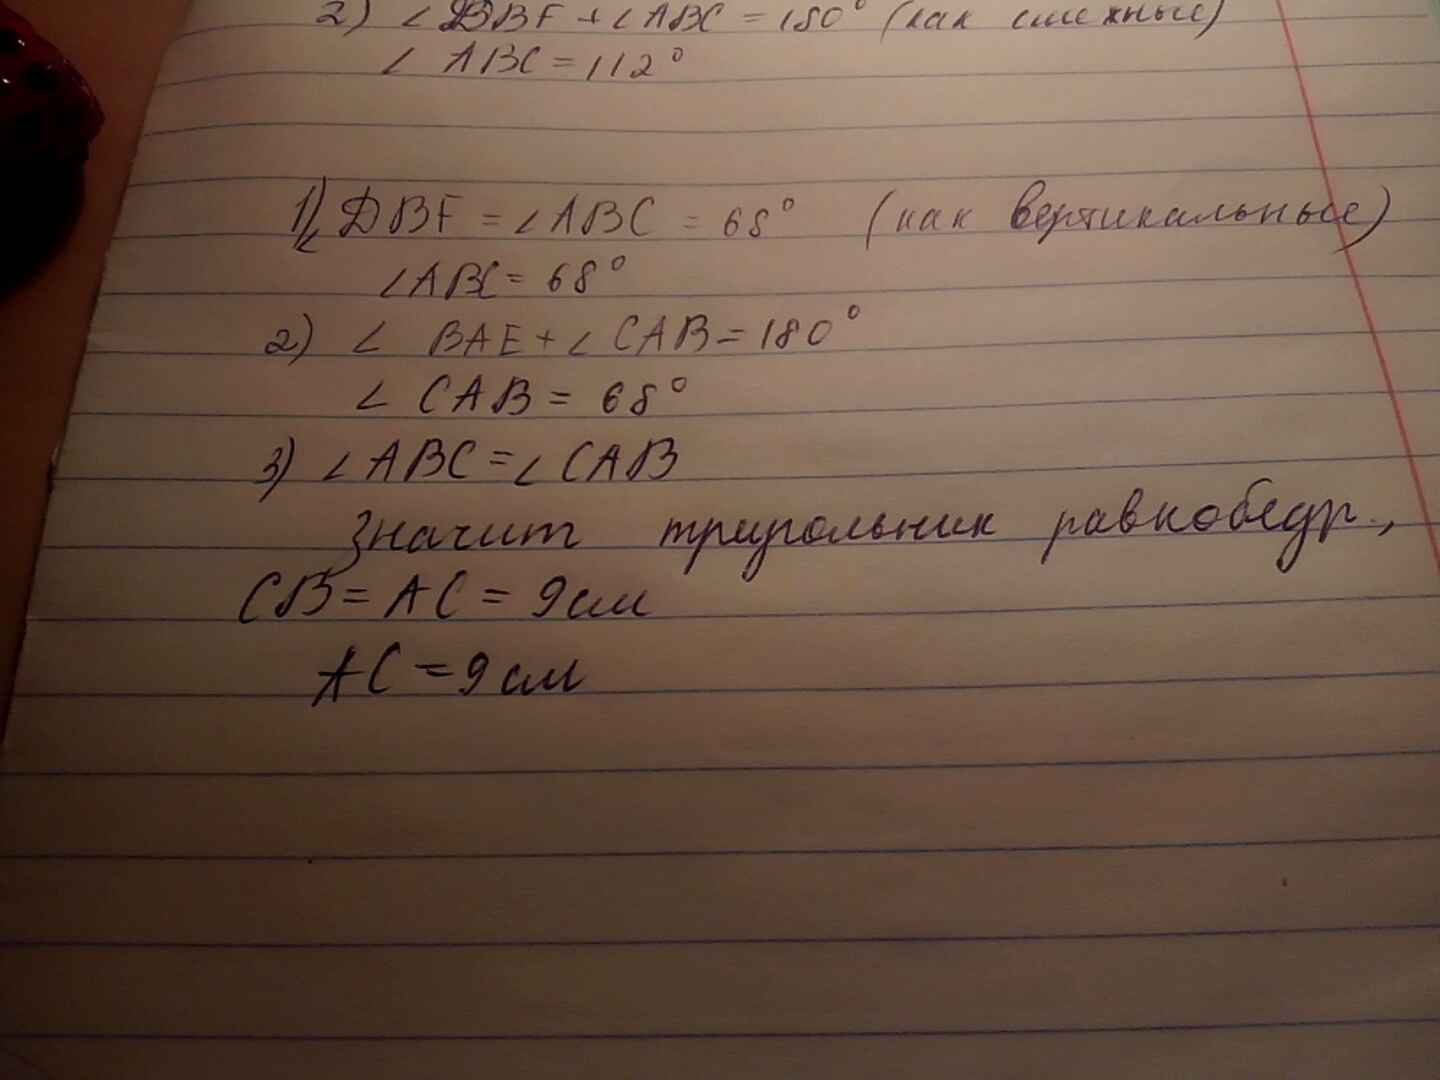 2) ∠ DBF + ∠ABC = 180° (как смежные)
∠ ABC = 112°
1) ∠ DBF = ∠ABC = 68° (как вертикальные)
∠ABC = 68°
2) ∠ BAE + ∠ CAB = 180°
∠ CAB = 68°
3) ∠ ABC = ∠ CAB
значит триугольник равнобедр.,
CB = AC = 9см
AC = 9см